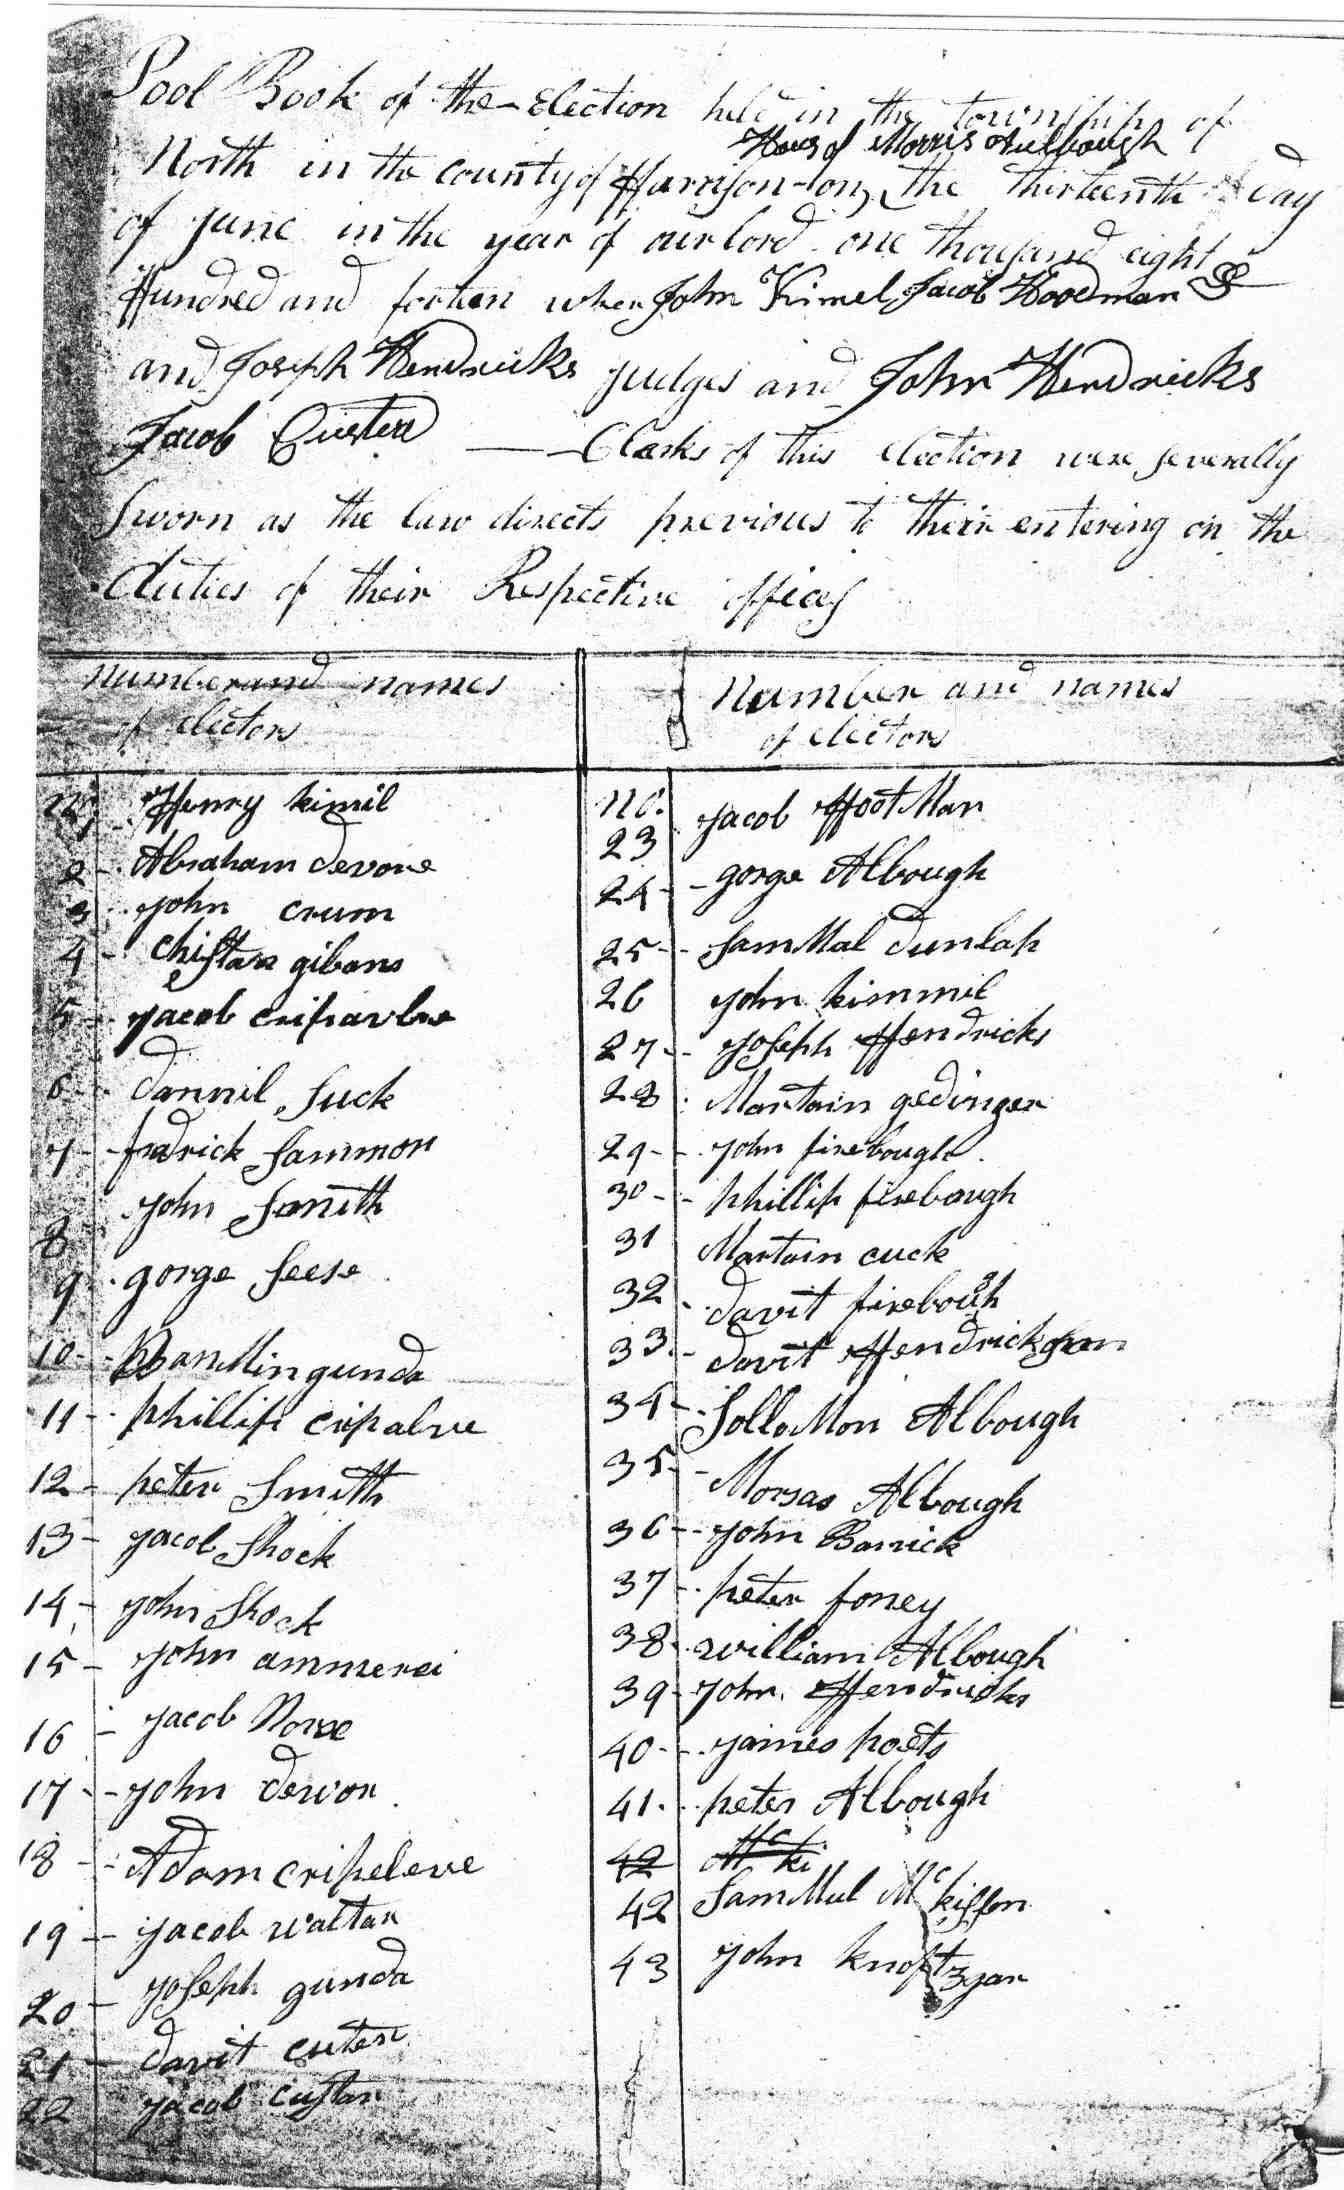 Pool Book of the Election held in the township of
Hous of Morris
North in the county of Harrison on the thirteenth day
of June in the year of our lord one thousand eight
Hundred and forten when John Kimel, Jacob Hoodman
and Joseph Hendricks judges and John Hendricks
Jacob Custer Clarks of this election were severally
sworn as the law directs previous to their entering on the
duties of their Respective offices
number and names
of electors
Henry kimil
2 Abraham devore
3 john crum
4 chistan gibans
5 jacob
6 dannil suck
7 fradrick sammon
8 john smith
9 gorge seese
10 gunda
11 phillip cripalve
12 peter smith
13 jacob shock
14 john shock
15 john ammerei
16 jacob
17 john devor
18 Adam cripeleve
19 jacob waltar
20 joseph gunda
21 davit cuter
22 jacob custar
number and names
of electors
no.
23 jacob HootMan
24 gorge Albough
25 samMal dunlap
26 john kimmil
27 joseph Hendricks
28 Martain gedinger
29 john firebough
30 phillip firebough
31 Martain cuck
32 davit firebough
33 davit Hendrickson
34 solloMon Albough
35 Morsas Albough
36 john Barrick
37 peter foney
38 william Albough
39 john Hendricks
40 james poets
41 peter Albough
42 Mc ki
42 samMul Mc kissen
43 john knoftzgar